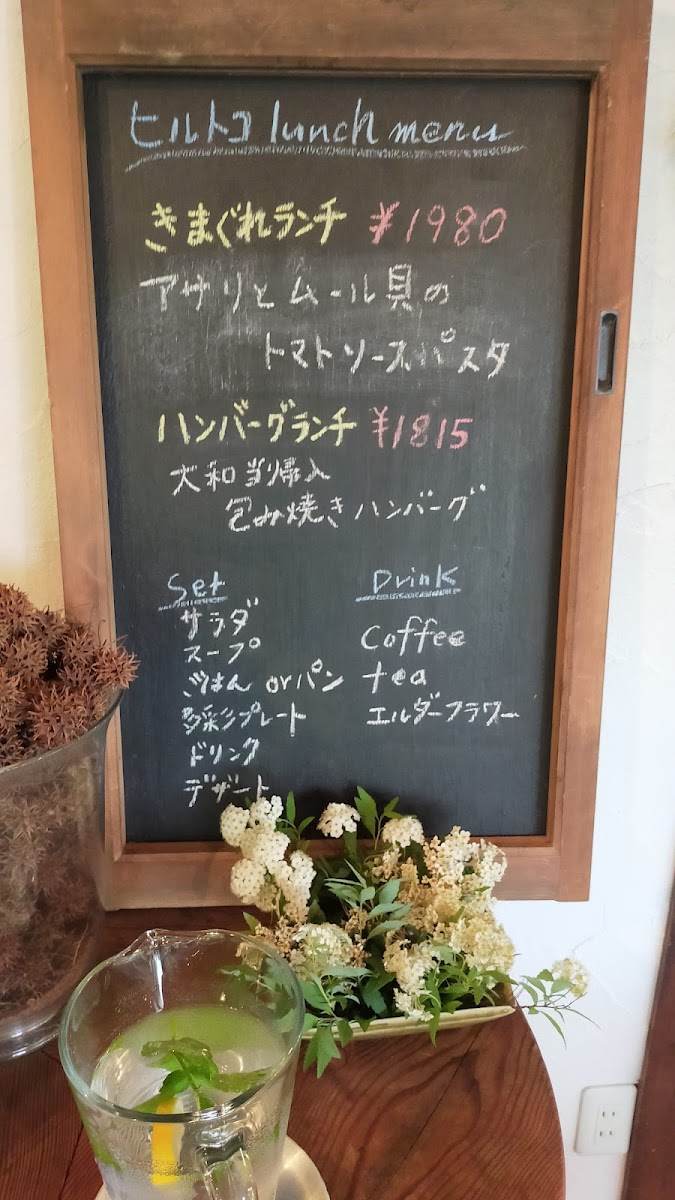 ヒルトコ lunch menu
きまぐれランチ ¥1980
アサリとムール貝の
トマトソースパスタ
ハンバーグランチ ¥1815
大和当帰入
包み焼きハンバーグ
Set
サラダ
スープ
ごはん orパン
多彩プレート
ドリンク
デザート
Drink
Coffee
tea
エルダーフラワー